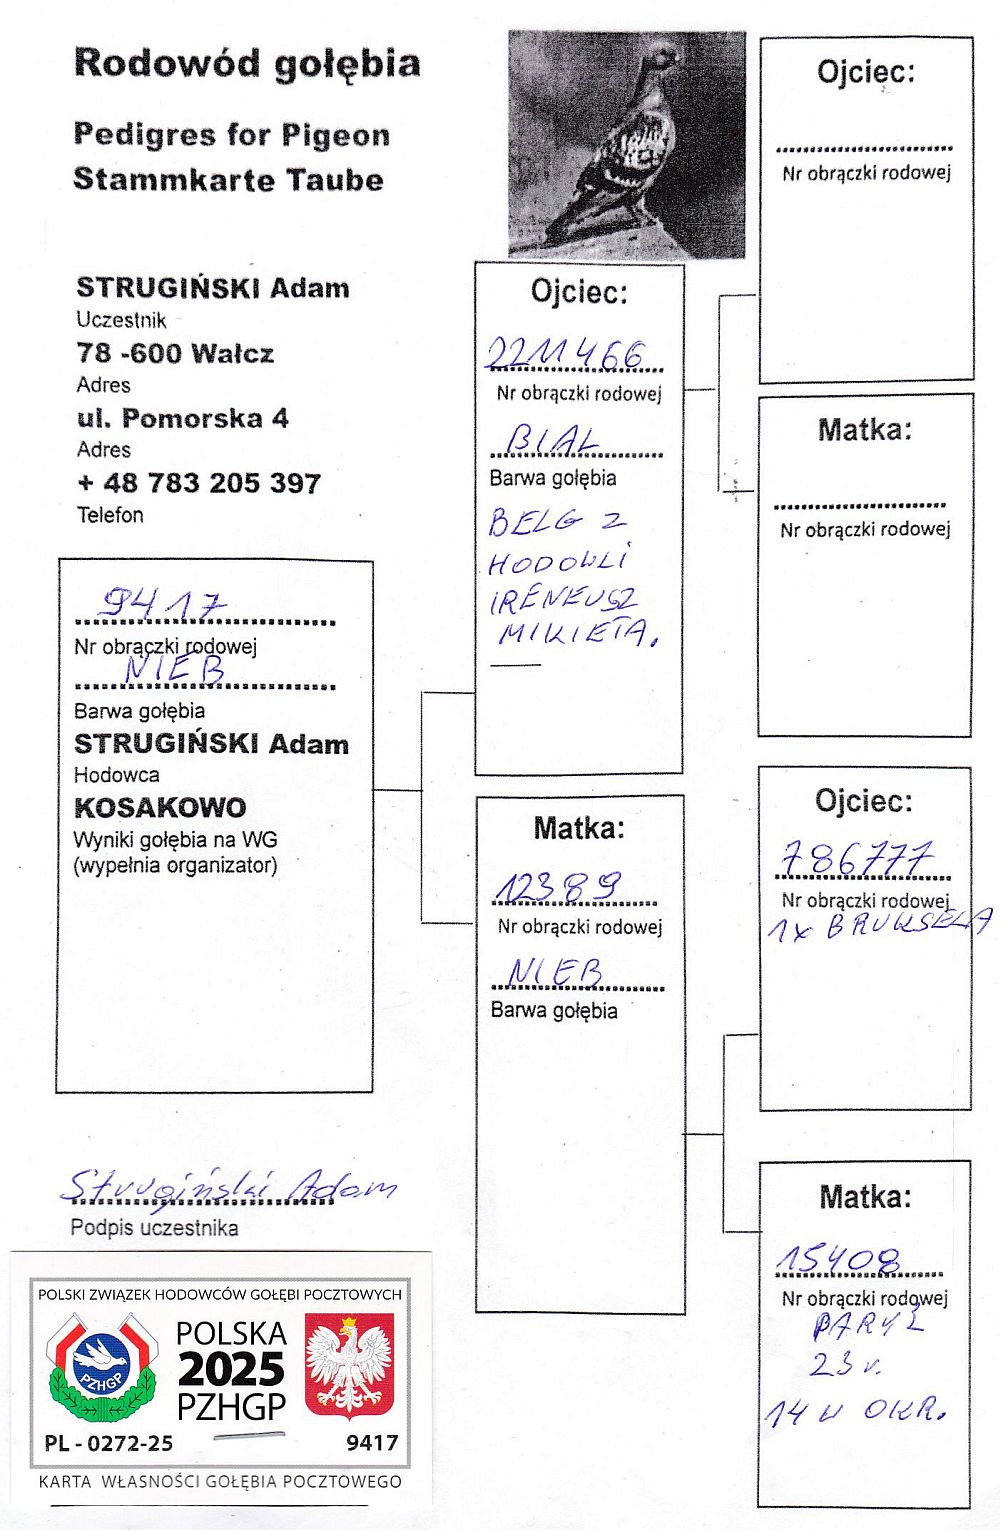 Rodowód gołębia
Pedigres for Pigeon
Stammkarte Taube
STRUGIŃSKI Adam
Uczestnik
78 -600 Wałcz
Adres
ul. Pomorska 4
Adres
+ 48 783 205 397
Telefon
9417
Nr obrączki rodowej
NIEB
Barwa gołębia
STRUGIŃSKI Adam
Hodowca
KOSAKOWO
Wyniki gołębia na WG
(wypełnia organizator)
Strugiński Adam
Podpis uczestnika
POLSKI ZWIĄZEK HODOWCÓW GOŁĘBI POCZTOWYCH
PZHGP
POLSKA
2025
PZHGP
PL - 0272-25 9417
KARTA WŁASNOŚCI GOŁĘBIA POCZTOWEGO
Ojciec:
2211466
Nr obrączki rodowej
BIAL
Barwa gołębia
BELG Z
HODOWLI
IRENEUSZ
MIKIETA.
Matka:
12389
Nr obrączki rodowej
NIEB
Barwa gołębia
Ojciec:
Nr obrączki rodowej
Matka:
Nr obrączki rodowej
Ojciec:
786777
Nr obrączki rodowej
1x BRUKSELA
Matka:
15408
Nr obrączki rodowej
PARYŻ
23 r.
14 W OKR.